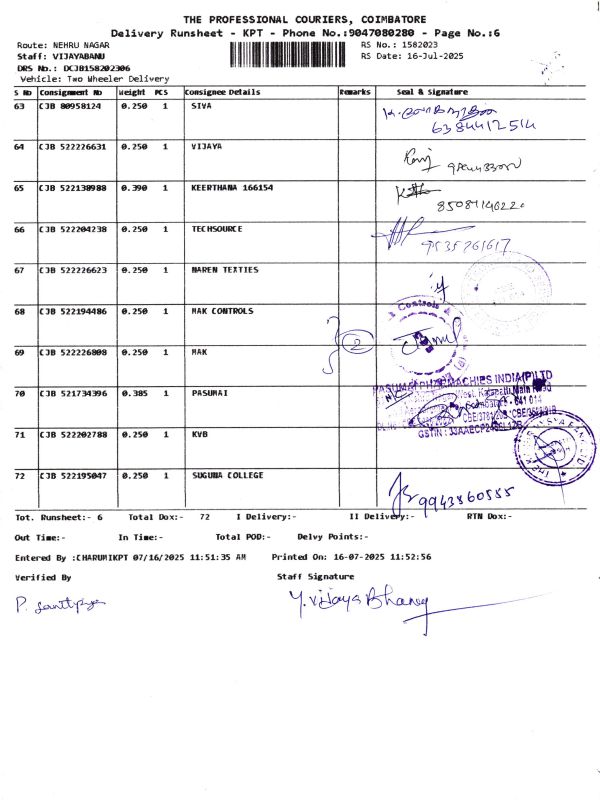 THE PROFESSIONAL COURIERS, COIMBATORE
Delivery Runsheet - KPT - Phone No.:9047080280 - Page No.:6
Route: NEHRU NAGAR RS No.: 1582023
Staff: VIJAYABANU RS Date: 16-Jul-2025
DRS No.: DCJB158202306
Vehicle: Two Wheeler Delivery
S No Consignment No Weight PCS Consignee Details Remarks Seal & Signature
63 CJB 80958124 0.250 1 SIVA
6384412514
64 CJB 522226631 0.250 1 VIJAYA
65 CJB 522138988 0.390 1 KEERTHANA 166154
66 CJB 522204238 0.250 1 TECHSOURCE
9535261617
67 CJB 522226623 0.250 1 NAREN TEXTIES
68 CJB 522194486 0.250 1 MAK CONTROLS
Controls &
2
69 CJB 522226808 0.250 1 MAK
70 CJB 521734396 0.385 1 PASUMAI
PASUMAI PHARMACHIES INDIA(P)LTD
Main Road
Coimbatore - 641 014
71 CJB 522202788 0.250 1 KVB
72 CJB 522195047 0.250 1 SUGUNA COLLEGE
9943860555
Tot. Runsheet:- 6 Total Dox:- 72 I Delivery:- II Delivery:- RTN Dox:-
Out Time:- In Time:- Total POD:- Delvy Points:-
Entered By :CHARUMIKPT 07/16/2025 11:51:35 AM Printed On: 16-07-2025 11:52:56
Verified By Staff Signature
Y. Vijaya Bhanu